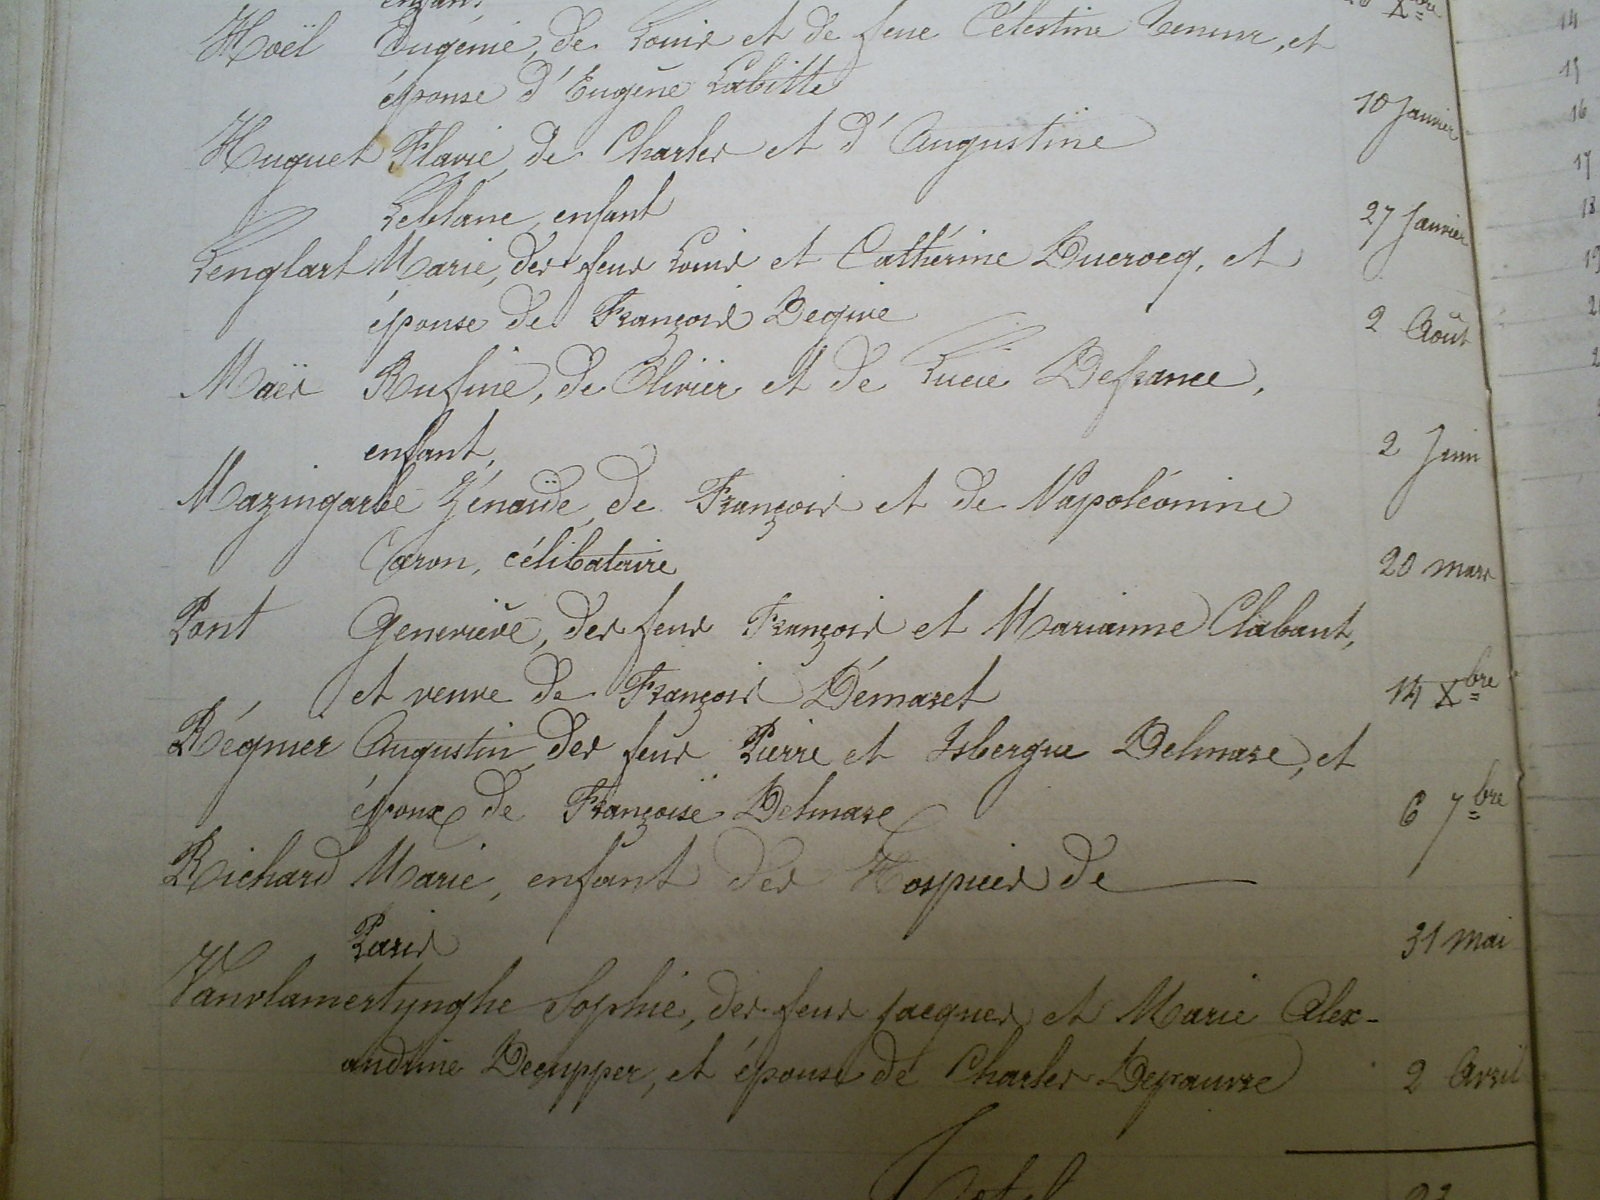 enfant, Xbre
Hoël Eugénie, de Louis et de feue Célestine et
épouse d'Eugène Labitte 10 Janvier
Huguet Flavie, de Charles et d'Augustine
Leblanc, enfant 27 Janvier
Lenglart Marie, des feus Louis et Cathérine Ducrocq, et
épouse de François 2 Août
Maës Rufine, de Olivier et de Lucie Defrance,
enfant, 2 Juin
Mazingarbe Zénaïde, de François et de Napoléonine
Caron, célibataire 20 mars
Pont Geneviève, des feus François et Marianne Clabaut,
et veuve de François Démaret 14 Xbre
Régnier Augustin, des feus Pierre et Isbergue Delmare, et
époux de Françoise Delmare 6 7bre
Richard Marie, enfant des Hospices de
Paris 31 mai
Vanvlamertynghe Sophie, des feus Jacques et Marie Alex-
andrine Decupper, et épouse de Charles Depauvre 2 Avril
Total